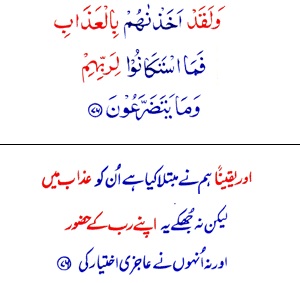 وَلَقَدْ اَخَذْنٰهُمْ بِالْعَذَابِ
فَمَا اسْتَكَانُوْا لِرَبِّهِمْ
وَمَا يَتَضَرَّعُوْنَ ﴿۷۶﴾
اور یقیناً ہم نے مبتلا کیا ہے اُن کو عذاب میں
لیکن نہ جُھکے یہ اپنے رب کے حضور
اور نہ اُنہوں نے عاجزی اختیار کی ﴿۷۶﴾